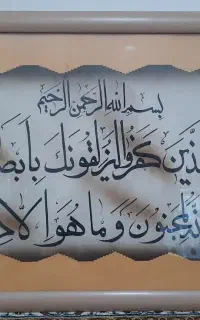 بسم الله الرحمن الرحيم
الذين كفروا ليزلقونك بابصا
لمجنون وما هوا لا